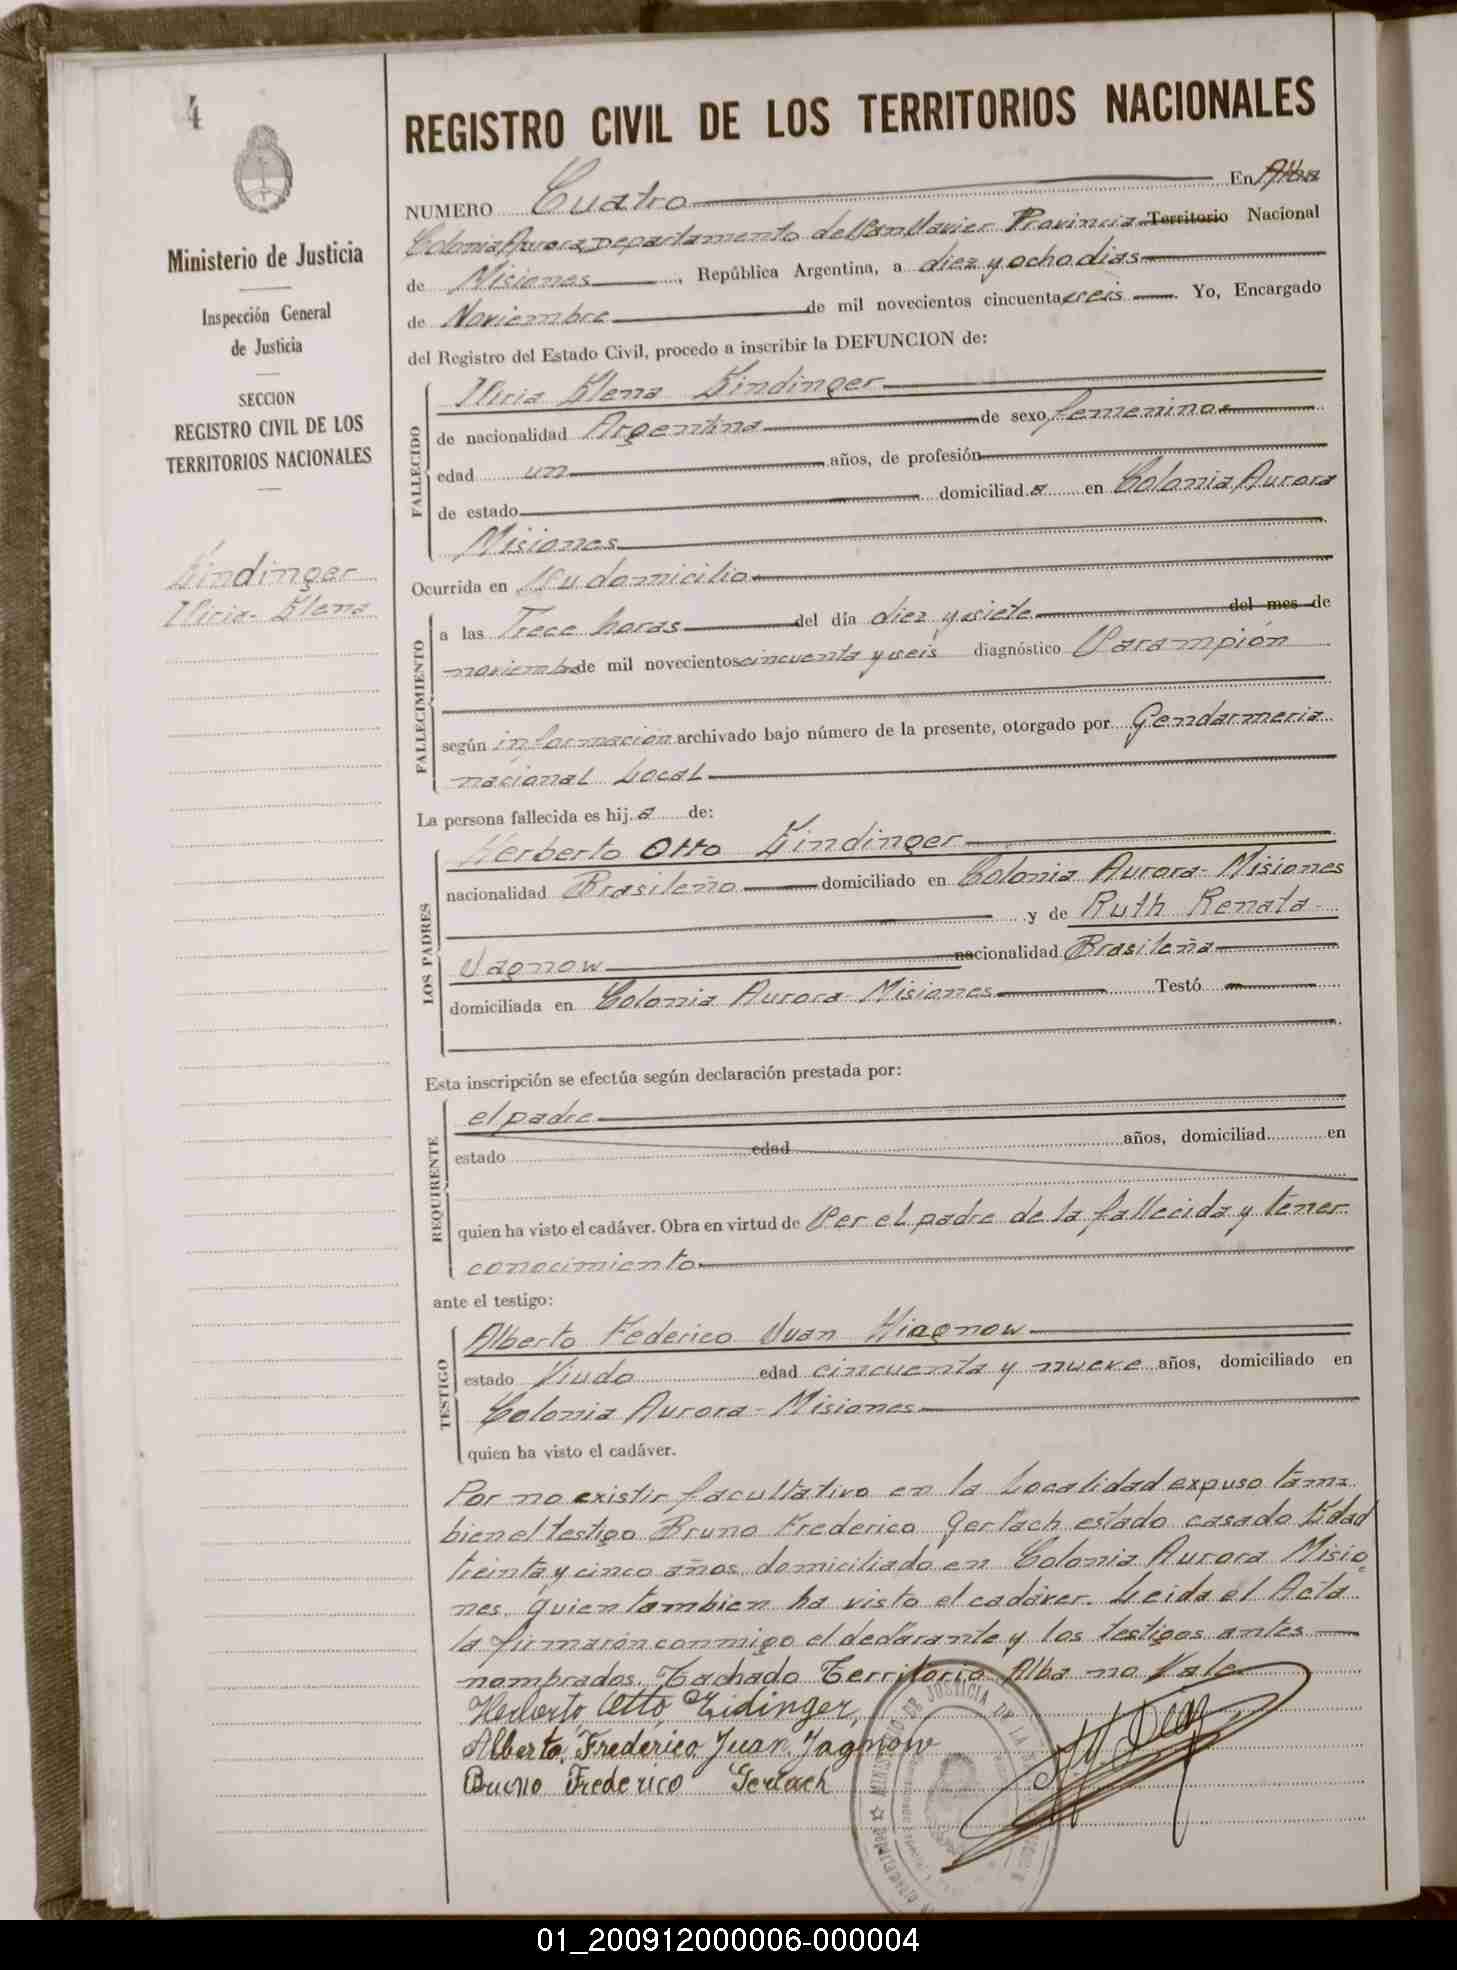 4
Ministerio de Justicia
Inspección General
de Justicia
SECCION
REGISTRO CIVIL DE LOS
TERRITORIOS NACIONALES
Lindinger
Elena
REGISTRO CIVIL DE LOS TERRITORIOS NACIONALES
NUMERO Cuatro En Alba
Colonia Aurora, Departamento de San Xavier Provincia Territorio Nacional
de Misiones, República Argentina, a diez y ocho dias
de Noviembre de mil novecientos cincuenta y seis. Yo, Encargado
del Registro del Estado Civil, procedo a inscribir la DEFUNCION de:
FALLECIDO
Elena Zindinger
de nacionalidad Argentina de sexo femenino
edad un años, de profesión
de estado domiciliad a en Colonia Aurora
Misiones
Ocurrida en Su domicilio
FALLECIMIENTO
a las Trece horas del día diez y siete del mes de
noviembre de mil novecientos cincuenta y seis diagnóstico Sarampión
según información archivado bajo número de la presente, otorgado por Gendarmeria
nacional Local
La persona fallecida es hij a de:
LOS PADRES
Herberto Otto Zindinger
nacionalidad Brasileño domiciliado en Colonia Aurora - Misiones
y de Ruth Renata
Jagnow nacionalidad Brasileña
domiciliada en Colonia Aurora - Misiones Testó
Esta inscripción se efectúa según declaración prestada por:
REQUIRENTE
el padre
estado edad años, domiciliad en
quien ha visto el cadáver. Obra en virtud de Ser el padre de la fallecida y tener
conocimiento
ante el testigo:
TESTIGO
Alberto Federico Juan
estado Viudo edad cincuenta y nueve años, domiciliado en
Colonia Aurora - Misiones
quien ha visto el cadáver.
Por no existir facultativo en la Localidad expuso tam=
bien el testigo Bruno Frederico Gerlach estado casado Edad
treinta y cinco años, domiciliado en Colonia Aurora Misio=
nes, quien tambien ha visto el cadáver. Leida el Acta
la firmarón conmigo el declarante y los testigos antes
nombrados. Tachado Territorio Alba no Vale
Herberto Otto Zidinger,
Alberto, Frederico Juan. Jagnow
Bruno Frederico Gerlach
MINISTERIO DE JUSTICIA DE LA
01_200912000006-000004